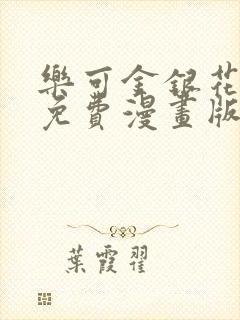 樂可金銀花
免費漫畫版
葉霞翟